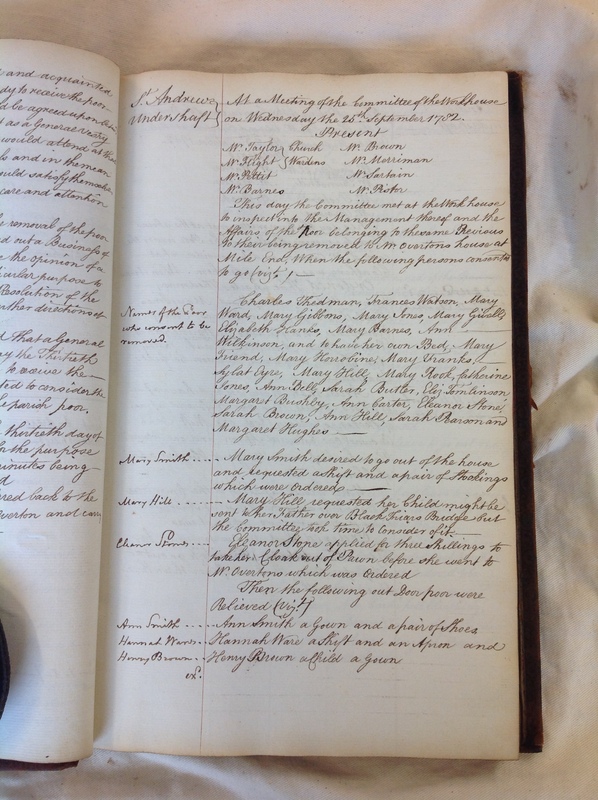 s and acquainted
dy to receive the poor
d be agreed upon
t as a General Vestry
would attend at
ls and in the mean
ould satisfy themselves
care and attention
e removal of the poor
ed out a Business of
e the opinion of a
icular purpose to
Resolution of the
rther directions of
d that a General
ay the Thirtieth
to receive the
ted to consider the
e parish poor.
thirtieth day of
h the purpose
minutes being
d
ered back to the
Overton and carry
St. Andrew
Undershaft
At a Meeting of the Committee of the Workhouse
on Wednesday the 25th September 1782.
Present
Mr. Taylor Church Mr. Brown
Mr. Hight Wardens Mr. Merriman
Mr. Pettit Mr. Sartain
Mr. Barnes Mr. Pistor
This day the Committee met at the Workhouse
to inspect into the Management thereof and the
Affairs of the Poor belonging to the same Previous
to their being removed to Mr Overtons house at
Mile End, When the following persons consented
to go (vizt.)—
Names of the Poor
who consent to be
removed.
Charles Thedman, Frances Watson, Mary
Ward, Mary Gibbons, Mary Jones Mary Gisell,
Elizabeth Hanks, Mary Barnes, Ann
Wilkinson, and to have her own Bed, Mary
Friend, Mary Horrobine, Mary Franks,
Eyre, Mary Hill, Mary Rook, Catherine
Jones, Ann Bell, Sarah Butler, Eliz Tomlinson
Margaret Bushby, Ann Carter, Eleanor Stone,
Sarah Brown, Ann Hill, Sarah Pearson and
Margaret Hughes —
Mary Smith ....
Mary Smith desired to go out of the house
and requested a Shift and a pair of Stockings
which were ordered
Mary Hill ....
Mary Hill requested her Child might be
sent to her Father over Black Friars Bridge but
the Committee took time to Consider of it.—
Eleanor Stone ....
Eleanor Stone applied for three Shillings to
take her Cloak out of Pawn before she went to
Mr. Overtons which was Ordered
Then the following out Door poor were
Relieved (vizt.)
Ann Smith ....
Ann Smith a Gown and a pair of Shoes
Hannah Ware ..
Hannah Ware a Shift and an Apron and
Henry Brown ..
Henry Brown a Child a Gown
exd.